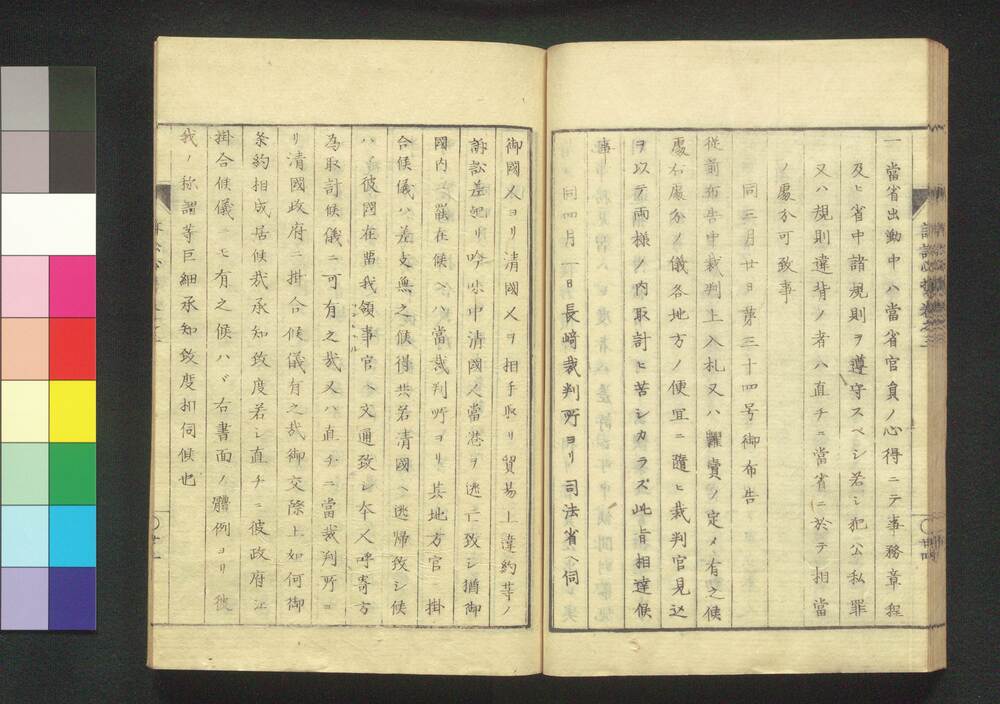 一當省出勤中ハ當省官員ノ心得ニテ事務章程
及ヒ省中諸規則ヲ遵守スベシ若シ犯公私罪
又ハ規則違背ノ者ハ直チニ當省ニ於テ相當
ノ處分可致事
同三月廿日第三十四号御布告
従前布告中裁判上入札又ハ糶賣ノ定メ有之候
處右處分ノ儀各地方ノ便宜ニ隨ヒ裁判官見込
ヲ以テ両様ノ内取計ヒ苦シカラズ此旨相達候
事
同四月一日長﨑裁判所ヨリ司法省ヘ伺
御國人ヨリ清國人ヲ相手取リ貿易上違約等ノ
訴訟差起リ吟味中清國人當港ヲ逃亡致シ猶御
國内ニ罷在候ヘハ當裁判所ヨリ其地方官ニ掛
合候儀ハ差支無之候得共若清國ヘ逃帰致シ候
ハヾ彼國在留我領事官ヘ文通致シ本人呼寄方
為取計候儀ニ可有之哉又ハ直チニ當裁判所ヨ
リ清國政府ニ掛合候儀有之哉御交際上如何御
条約相成居候哉承知致度若シ直チニ彼政府江
掛合候儀ニモ有之候ハヾ右書面ノ體例ヨリ彼
我ノ称謂等巨細承知致度扣伺候也